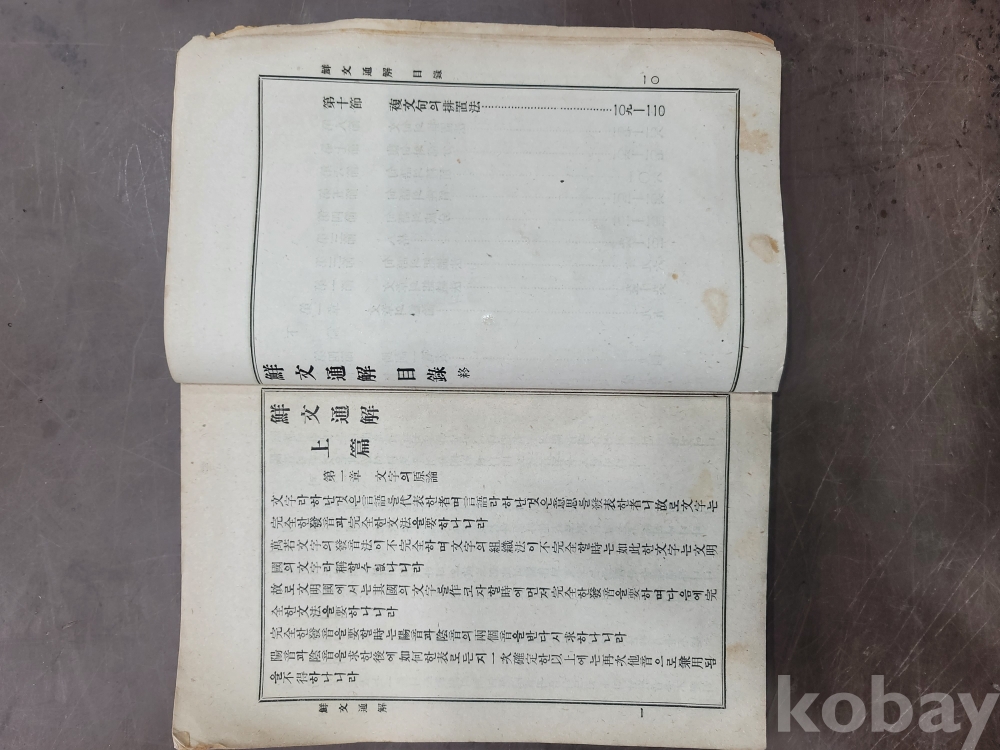 鮮文通解 目錄 一〇
第十節 複文句의排置法……………………一〇九—一一〇
鮮文通解目錄 終
鮮文通解
上篇
第一章 文字의原論
文字라하난것은言語를代表한者며言語라하난것은意思를發表한者니故로文字는
完全한發音과完全한文法을要하나니라
萬若文字의發音法이不完全하며文字의組織法이不完全할時는如此한文字는文明
國의文字라稱할수읎나니라
故로文明國에서는其國의文字를作코자할時에먼저完全한發音을要하며다음에完
全한文法을要하나니라
完全한發音을要할時는陽音과陰音의兩個音을반다시求하나니라
陽音과陰音을求한後에如何한表로든지一次確定한以上에는再次他音으로兼用됨
을不得하나니라
鮮文通解 一
kobay